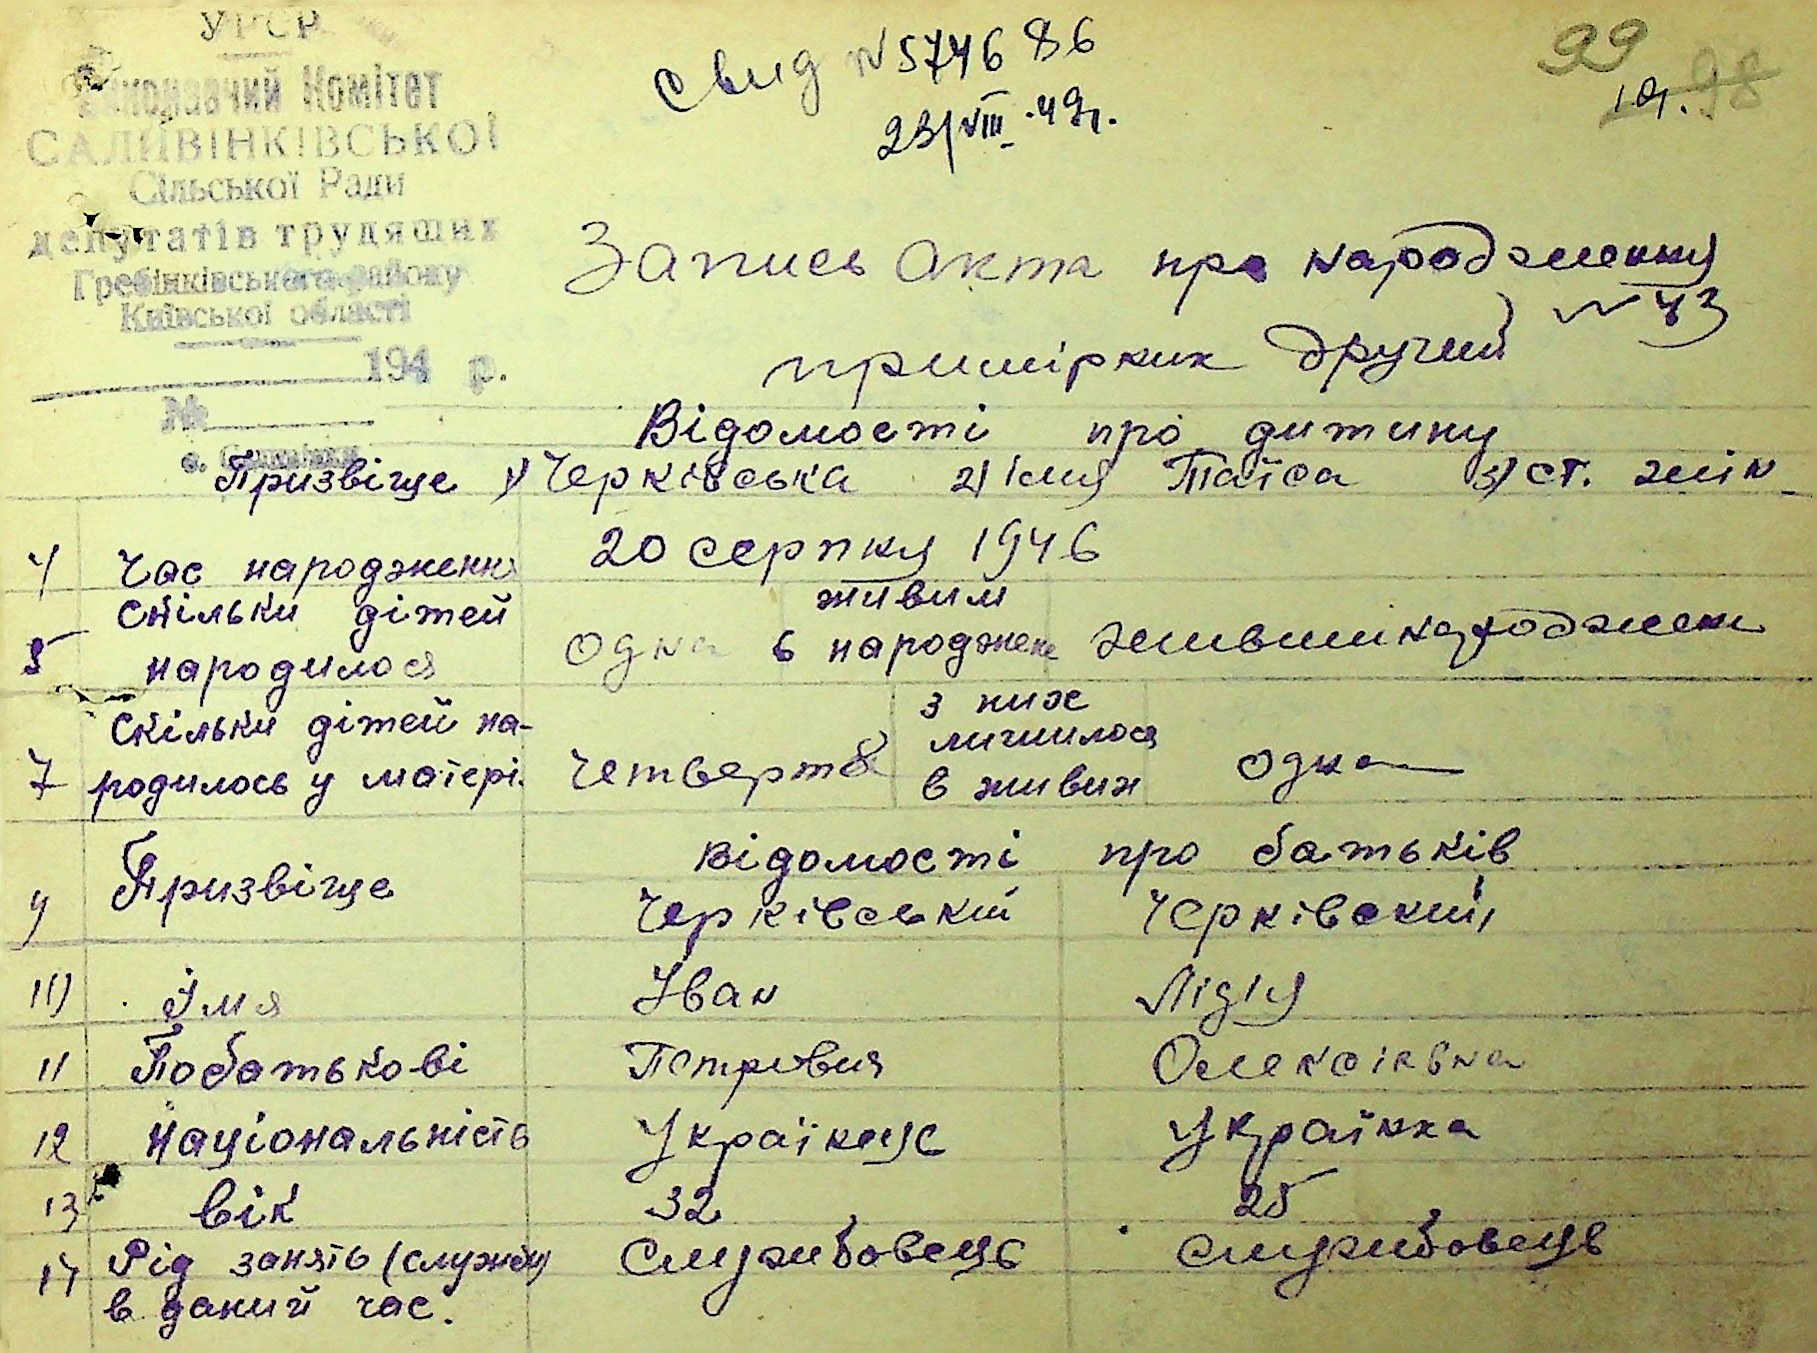 УРСР
Виконавчий Комітет
САЛИВІНКІВСЬКОЇ
Сільської Ради
депутатів трудящих
Гребінківського району
Київської області
194 р.
№
Свид N 574686
23/VIII - 49 р.
99
98
Запись Акта про народження
N 43
примірник другий
Відомості про дитину
Призвіще 1) Черківська 2) імя Таїса 3) ст. жін
4 Час народження 20 серпня 1946
5 скільки дітей народилося одна 6 живим народжене живим народжена
7 скільки дітей на-
родилось у матері четверта з них лишилося в живих одна
відомості про батьків
9 Призвіще Черківський Черківский
10) Імя Іван Лідія
11 Побатькові Петрович Олексіївна
12 Національність Українец Українка
13 вік 32 25
14 Рід занять (служби) службовець службовець
в даний час.